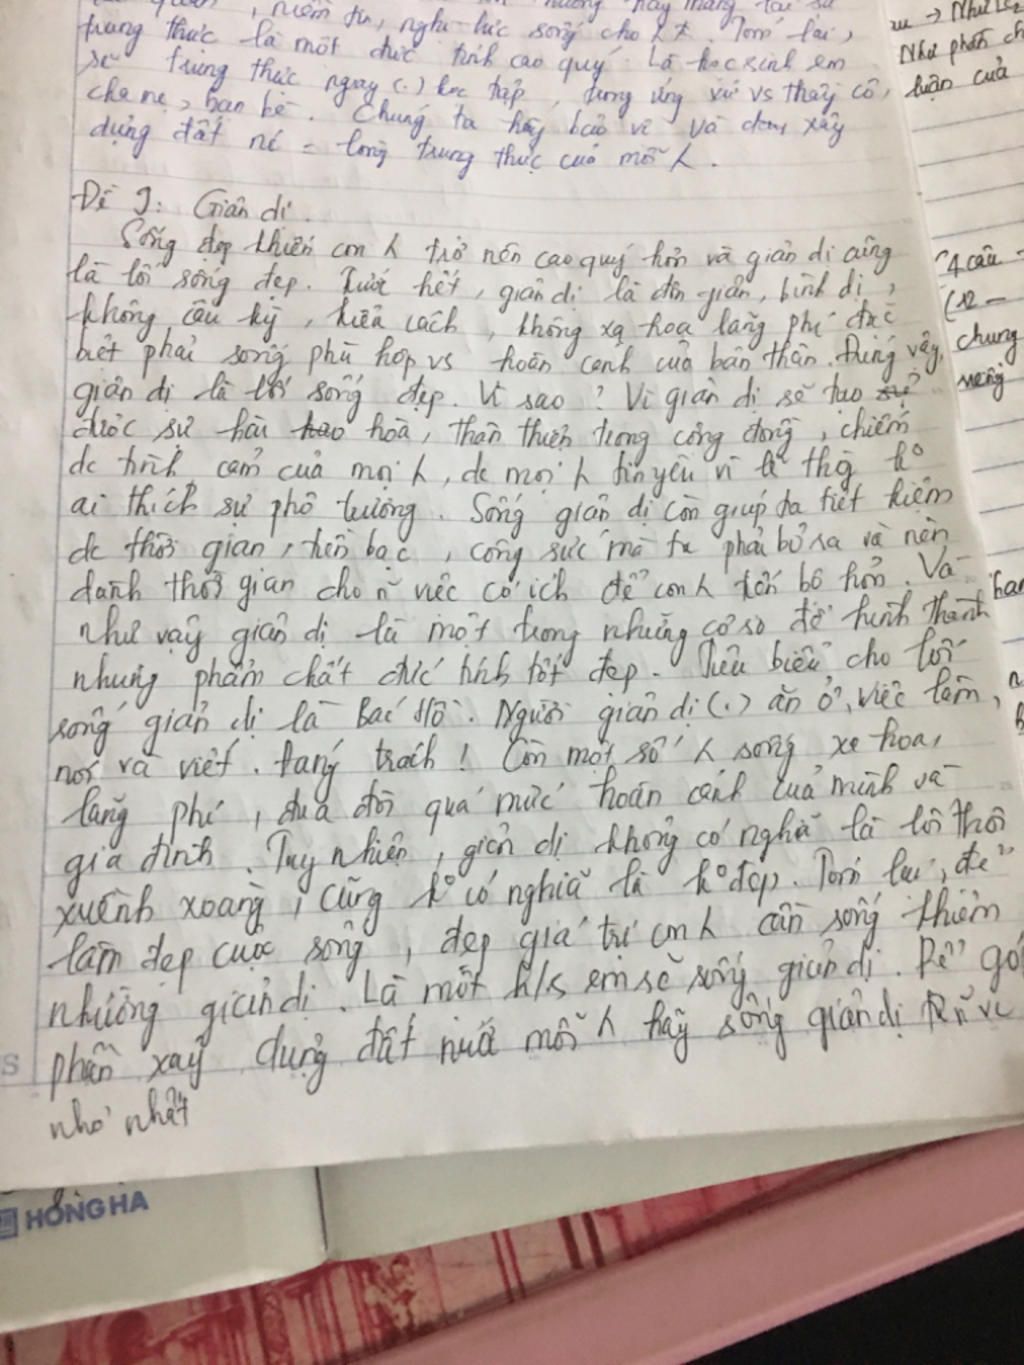 , niềm tin, nghị lực sống cho k ≠. Tóm lại,
trung thực là một đức tính cao quý. Là học sinh em
sẽ trung thực ngay (.) học tập, trong ứng xử vs thầy cô,
cha mẹ, bạn bè. Chúng ta hãy bảo vệ và đem xây
dựng đất nc = lòng trung thực của mỗi k.
Đề 9: Giản dị.
Sống đẹp khiến con k trở nên cao quý hơn và giản dị cũng
là lối sống đẹp. Trước hết, giản dị là đơn giản, bình dị,
không cầu kỳ, kiểu cách, không xa hoa lãng phí đặc
biệt phải sống phù hợp vs hoàn cảnh của bản thân. Đúng vậy,
giản dị là lối sống đẹp. Vì sao? Vì giản dị sẽ tạo
được sự hài hòa, thân thiện trong cộng đồng, chiếm
dc tình cảm của mọi k, dc mọi k tin yêu vì lẽ thg ko
ai thích sự phô trương. Sống giản dị còn giúp ta tiết kiệm
dc thời gian, tiền bạc, công sức mà ta phải bỏ ra và nên
dành thời gian cho n~ việc có ích để con k tiến bộ hơn. Và
như vậy giản dị là một trong những cơ sở để hình thành
những phẩm chất đức tính tốt đẹp. Tiêu biểu cho lối
sống giản dị là Bác Hồ. Người giản dị (.) ăn ở, việc làm,
nói và viết. Đáng trách! Còn một số k sống xa hoa,
lãng phí, đua đòi quá mức hoàn cảnh của mình và
gia đình. Tuy nhiên, giản dị không có nghĩa là lôi thôi
xuềnh xoàng, cũng ko có nghĩa là ko đẹp. Tóm lại, để
làm đẹp cuộc sống, đẹp giá trị con k cần sống khiêm
nhường giản dị. Là một h/s em sẽ sống giản dị. Để góp
phần xây dựng đất nước mỗi k hãy sống giản dị từ n~ việc
nhỏ nhất
→ Như
Như phần
luận của
"4 câu
(12 -
chung
riêng
HỒNG HÀ